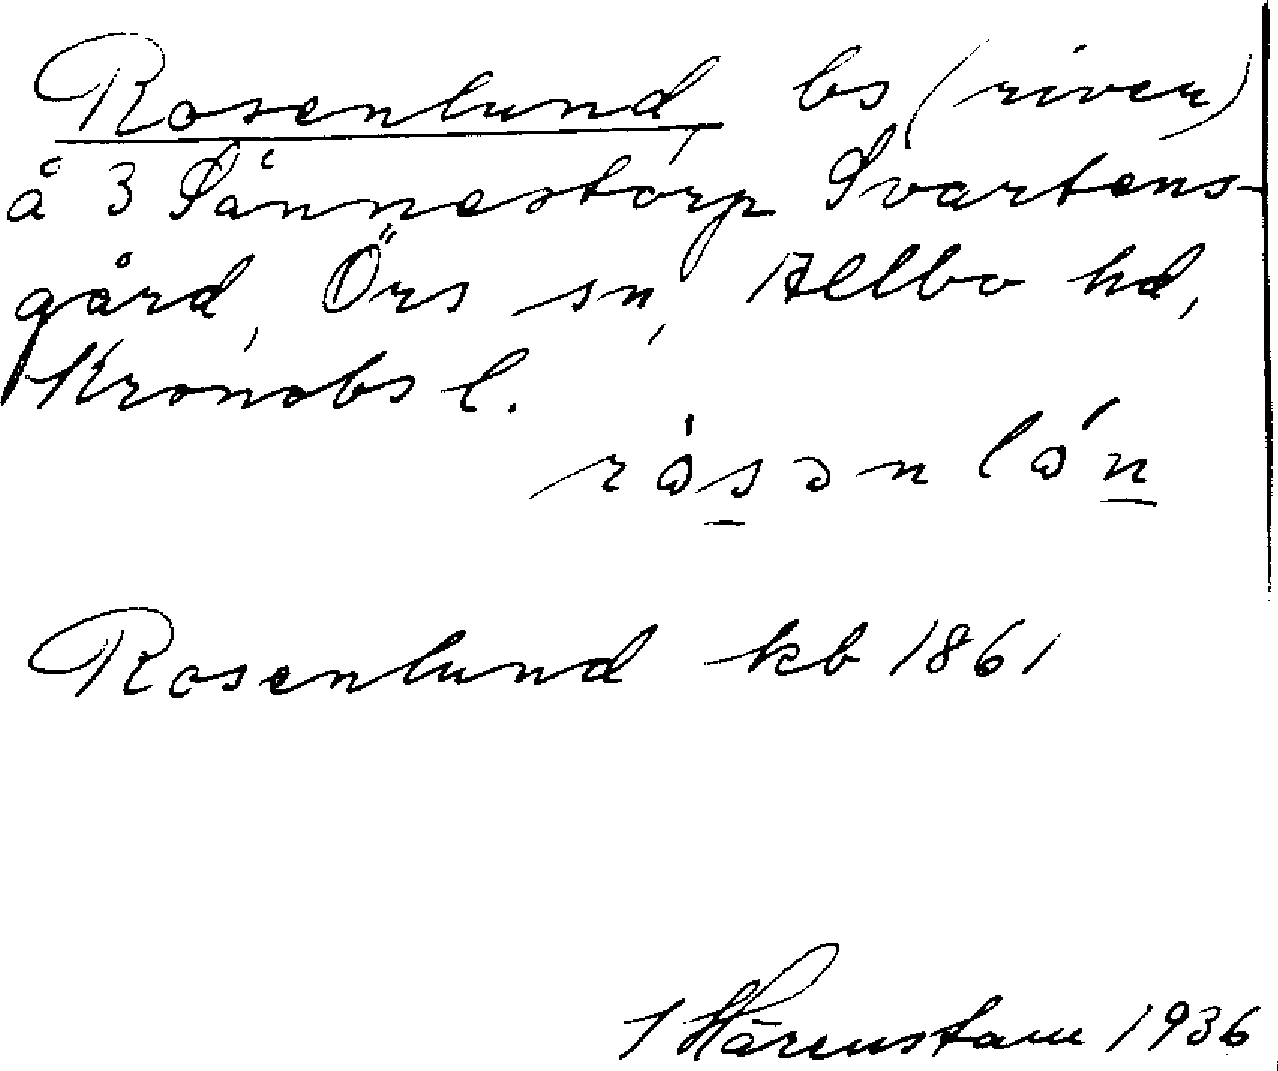 Rosenlund, bs (riven)
å 3 Sånnestorp Svartens-
gård, Örs sn, Allbo hd,
Kronobs l.
Rosenlund kb 1861
Härenstam 1936